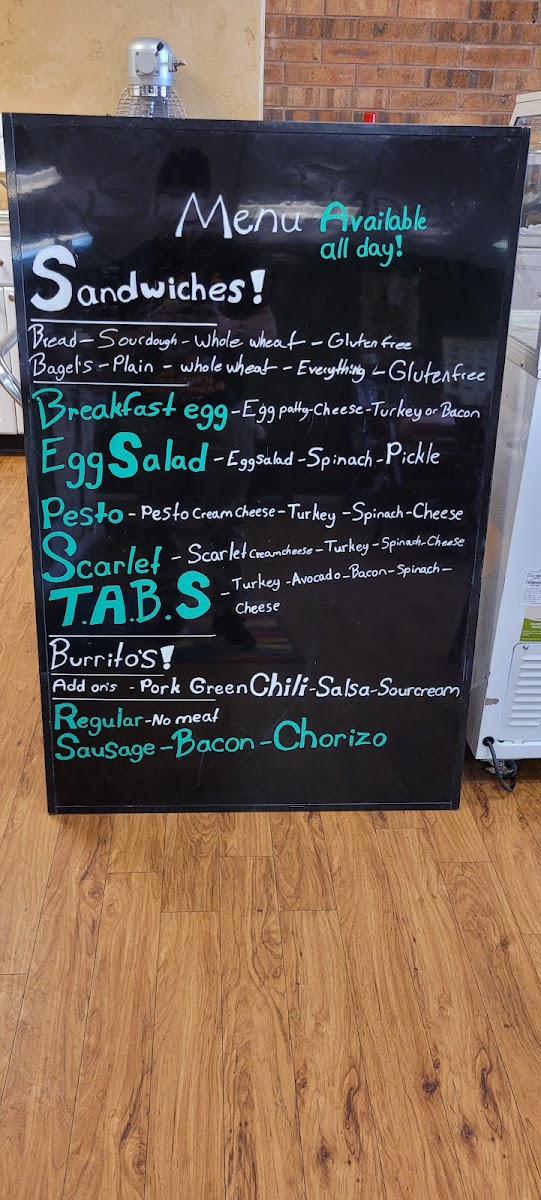 Menu Available
all day!
Sandwiches!
Bread - Sourdough - whole wheat - Gluten free
Bagel's - Plain - whole wheat - Everything - Gluten free
Breakfast egg - Egg patty - Cheese - Turkey or Bacon
Egg Salad - Egg salad - Spinach - Pickle
Pesto - Pesto cream cheese - Turkey - Spinach - Cheese
Scarlet - Scarlet creamcheese - Turkey - Spinach - Cheese
T.A.B.S - Turkey - Avocado - Bacon - Spinach -
Cheese
Burrito's!
Add on's - Pork Green Chili - Salsa - Sourcream
Regular - No meat
Sausage - Bacon - Chorizo